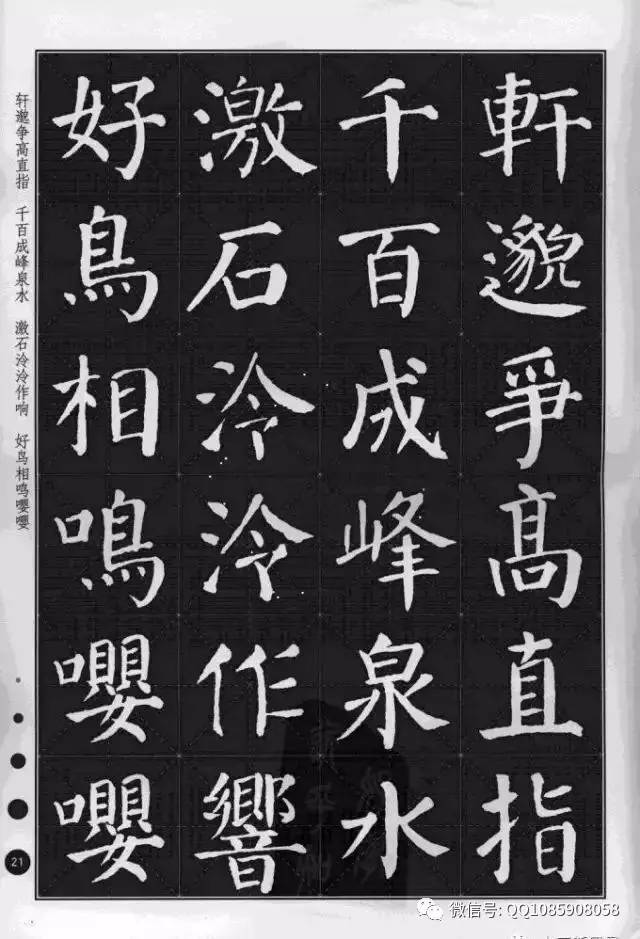 軒邈爭高直指
千百成峰泉水
激石泠泠作響
好鳥相鳴嚶嚶
轩邈争高直指 千百成峰泉水 激石泠泠作响 好鸟相鸣嘤嘤
21
微信号: QQ1085908058